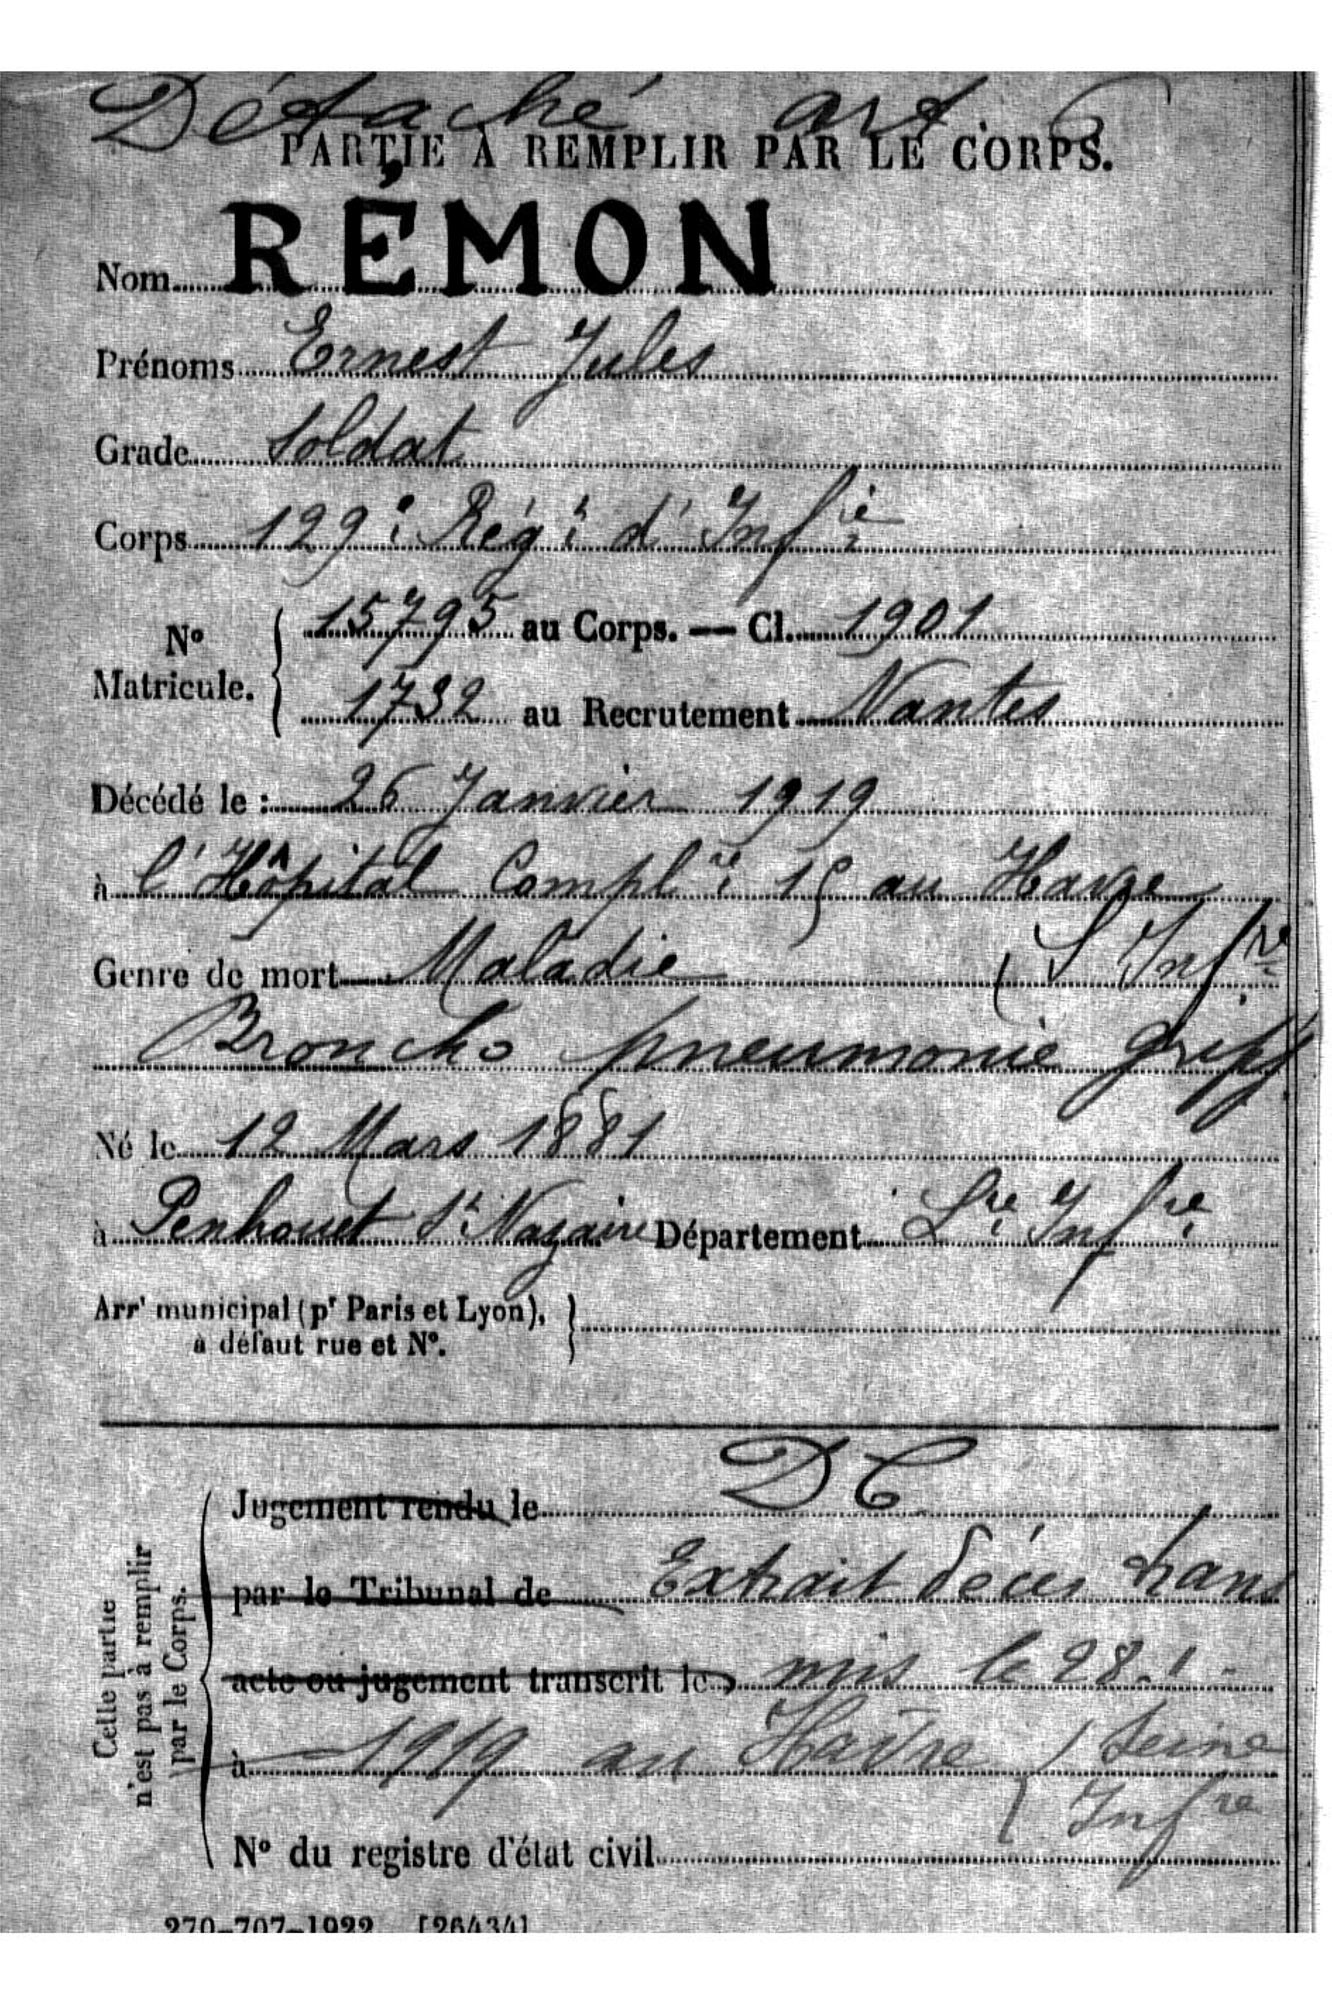 Détaché art. 6
PARTIE A REMPLIR PAR LE CORPS.
Nom RÉMON
Prénoms Ernest Jules
Grade Soldat
Corps 129e Régt d'Infie
No Matricule. 15795 au Corps. — Cl. 1901
1732 au Recrutement Nantes
Décédé le : 26 Janvier 1919
à l'Hôpital Complre 15 au Havre
Genre de mort Maladie (S Infre
Broncho pneumonie gripp
Né le 12 Mars 1881
à Penhouet St Nazaire Département Lre Infre
Arrt municipal (pr Paris et Lyon),
à défaut rue et No.
Cette partie
n'est pas à remplir
par le Corps.
Jugement rendu le DC
par le Tribunal de Extrait décès trans
acte ou jugement transcrit le mis le 28.1.
à 1919 au Havre (Seine
Infre
No du registre d'état civil
270-707-1922. [26434]